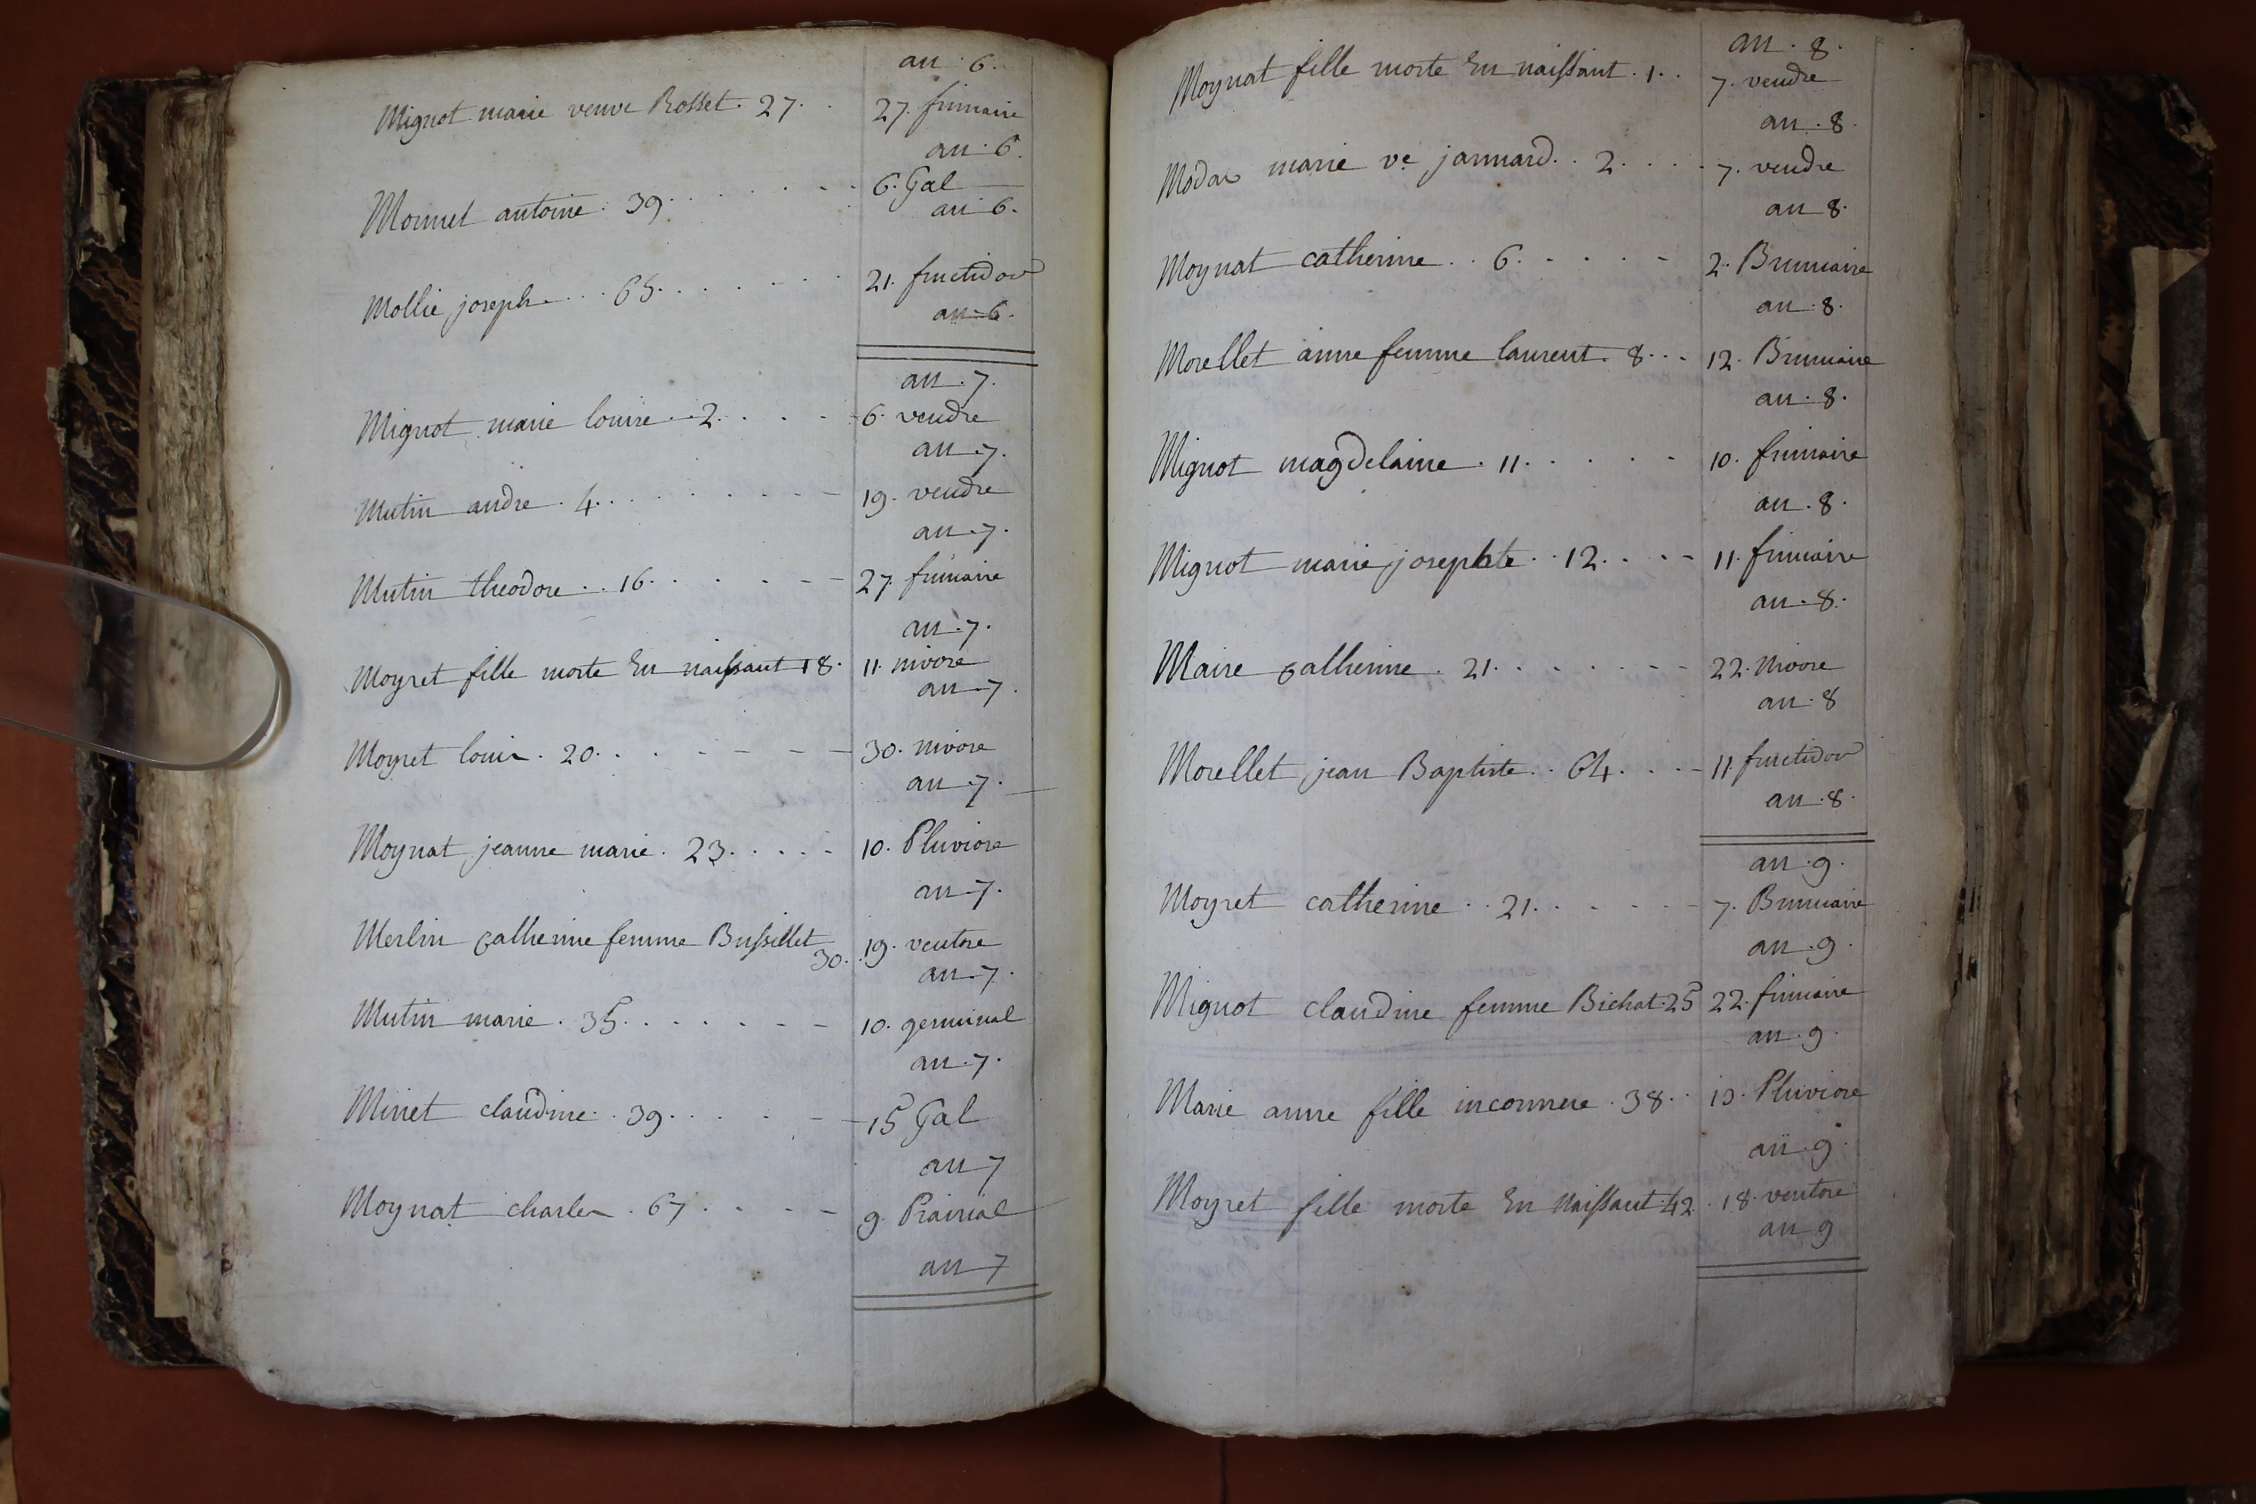 an 6.
Mignot marie veuve Rosset. 27. . 27. frimaire
an. 6.
Monnet antoine. 39. . . . . . . 6. Gal
an 6.
Mollie joseph . . . 65. . . . . . 21. fructidor
an 6.
an. 7.
Mignot marie louise . . 2. . . . . 6. vendre
an. 7.
Mutin andre. 4. . . . . . . . 19. vendre
an. 7.
Mutin theodore. . 16. . . . . . 27. frimaire
an. 7.
Moyret fille morte En naissant 18. 11. nivose
an. 7.
Moyret louis. 20. . . . . . . 30. nivose
an. 7.
Moynat jeanne marie. 23. . . . . 10. Pluviose
an. 7.
Merlin catherine femme Bussillet
30. . 19. ventose
an. 7.
Mutin marie. 35. . . . . . . 10. germinal
an. 7.
Minet claudine. . 39. . . . . . 15 Gal
an 7
Moynat charles. 67. . . . . 9 Prairial
an 7
an. 8.
Moynat fille morte En naissant. 1. . 7. vendre
an. 8.
marie ve jannard. . 2. . . . . 7. vendre
an 8.
Moynat catherine. . 6. . . . . 2. Brumaire
an. 8.
Morellet anne femme laurent. 8. . . 12. Brumaire
an. 8.
Mignot magdelaine. 11. . . . . . 10. frimaire
an. 8.
Mignot marie josephte. . 12. . . . 11. frimaire
an. 8.
Maire catherine. 21. . . . . . . 22. Nivose
an. 8
Morellet jean Baptiste. . 64. . . . 11. fructidor
an. 8.
an. 9.
Moyret catherine. . 21. . . . . . 7. Brumaire
an. 9.
Mignot claudine femme Bichat. 25 22. frimaire
an. 9.
Marie anne fille inconnue. 38. . Pluviose
an. 9.
Moyret fille morte En Naissant. 42. 18. ventose
an 9